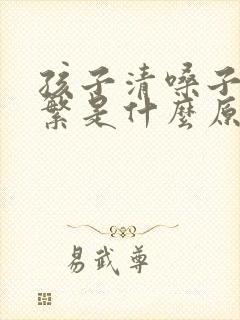 孩子清嗓子
繁是什麼原
易武尊